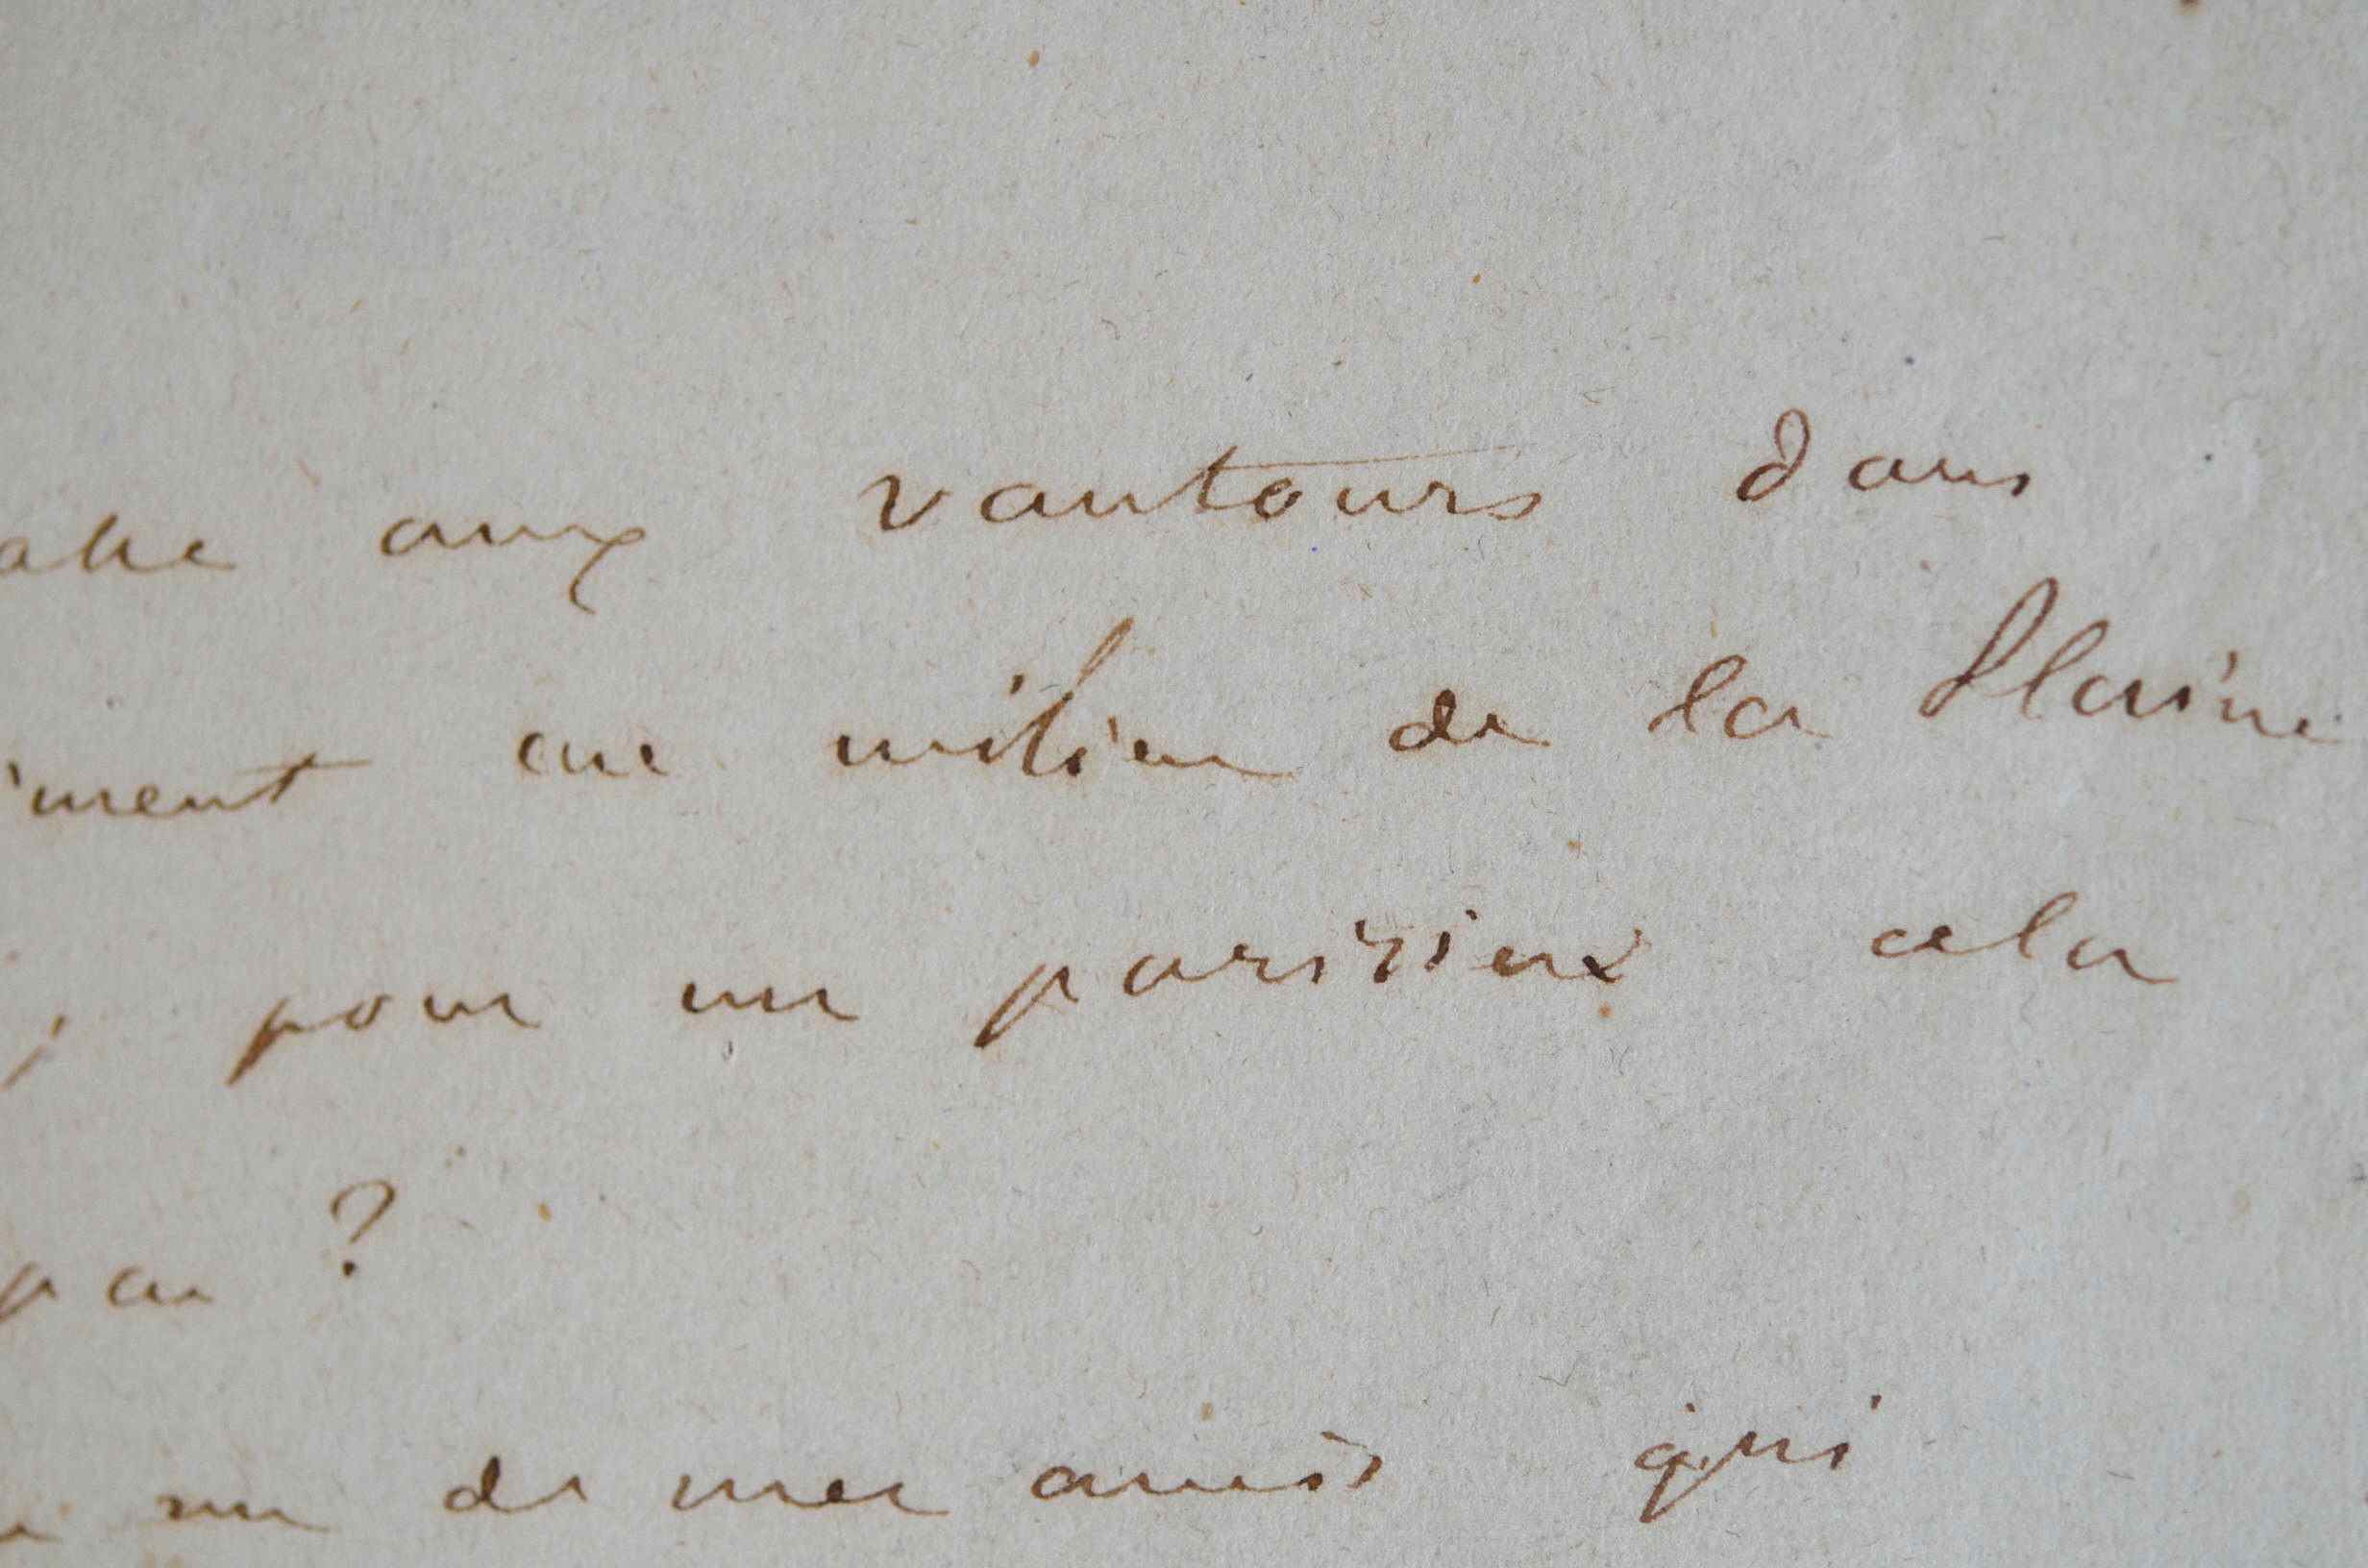 aux vautours dans
iment au milieu de la Plaine
; pour un parisien cela
pas ?
un de mes amis qui